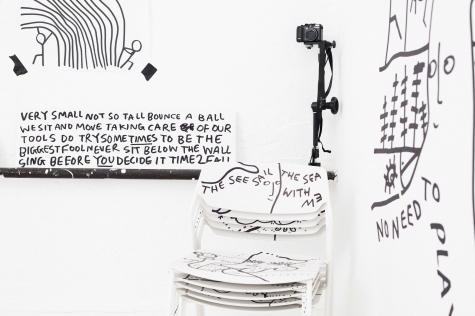 VERY SMALL NOT SO TALL BOUNCE A BALL
WE SIT AND MOVE TAKING CARE OF OUR
TOOLS DO TRY SOMETIMES TO BE THE
BIGGEST FOOL NEVER SIT BELOW THE WALL
SING BEFORE YOU DECIDE IT TIME 2 FALL
THE SEE SAIL THE SEA
WITH
ME
NO NEED
TO PLAY